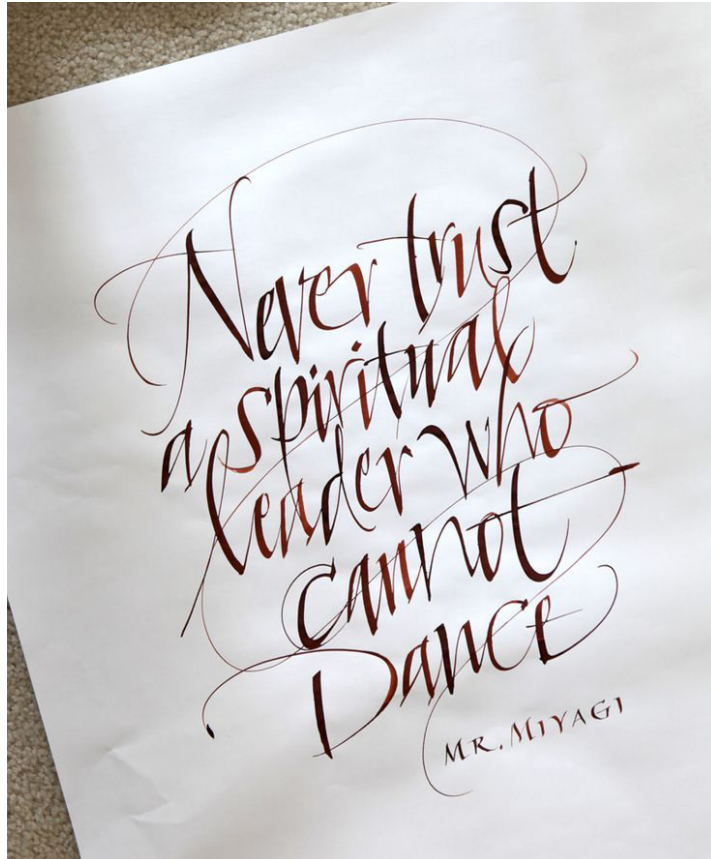 Never trust
a spiritual
leader who
cannot
Dance
MR. MIYAGI